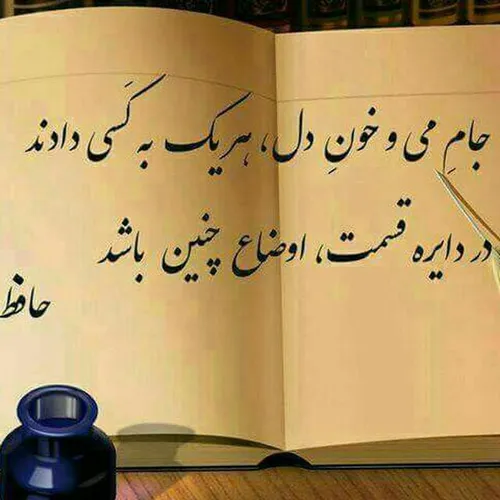 جامِ می و خونِ دل، هر یک به کَسی دادند
در دایره قسمت، اوضاع چنین باشد
حافظ